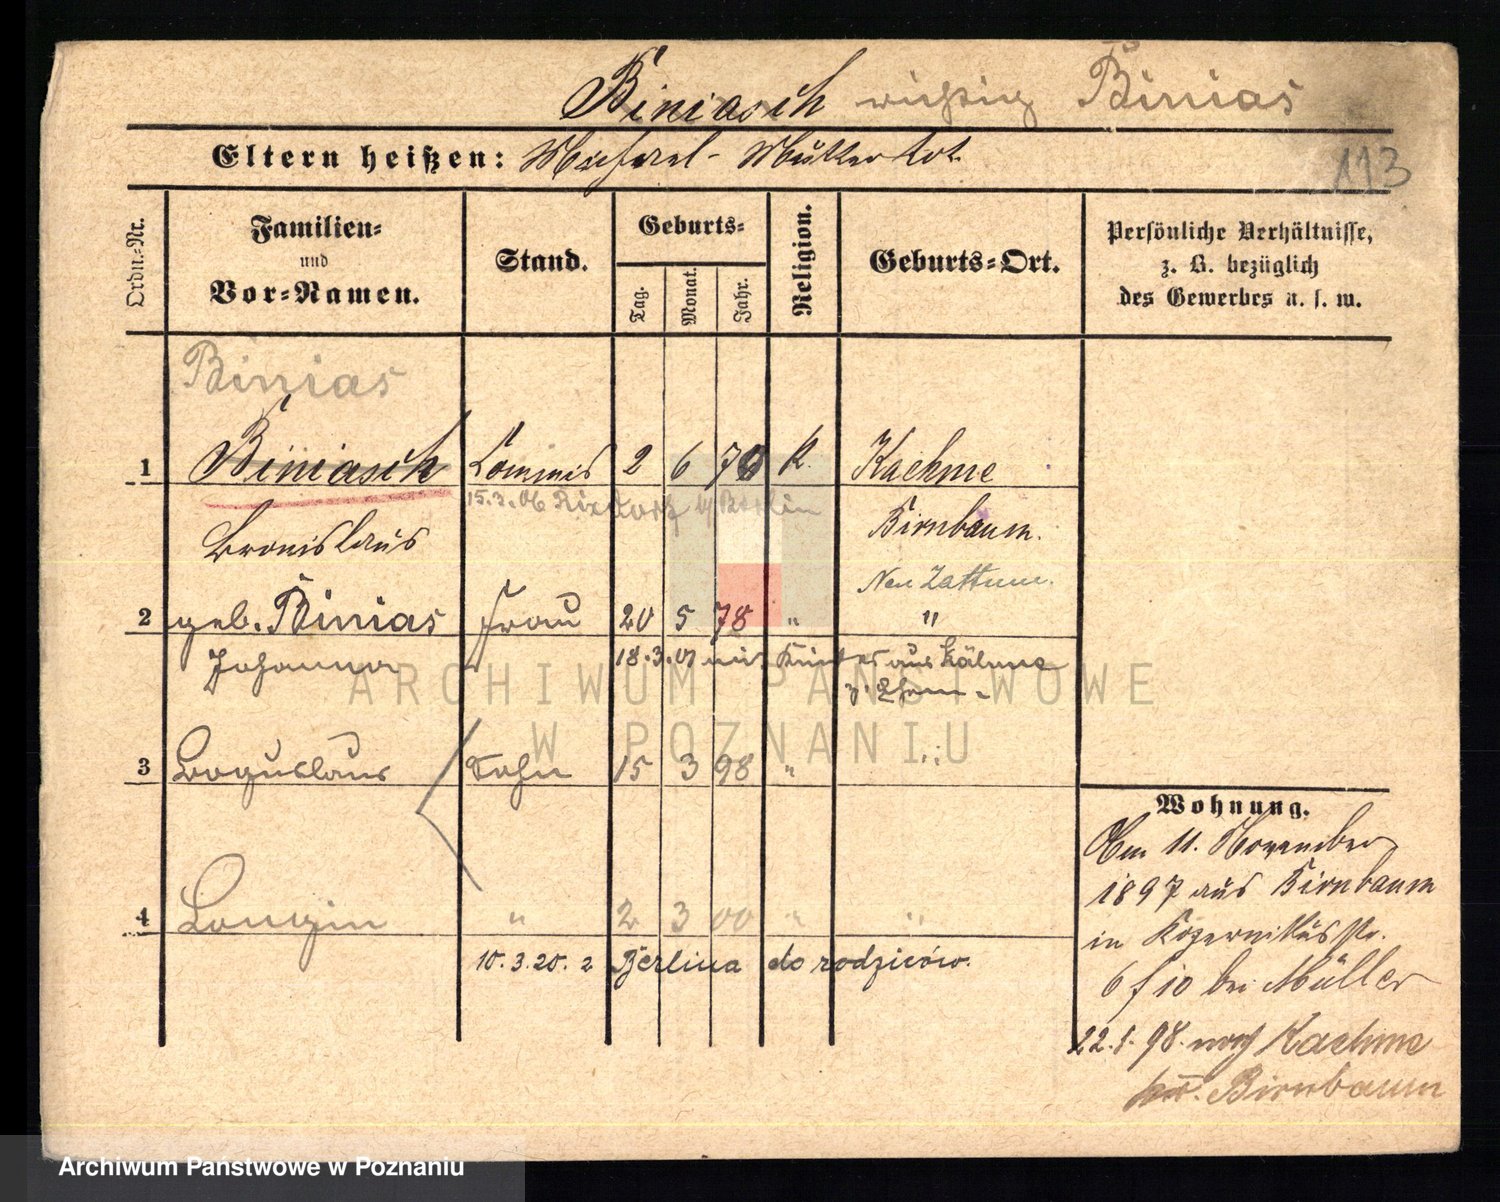 Biniasch richtig Binias
Eltern heißen: Michael - Mutter tot.
113
Ordn.-Nr.
Familien-
und
Vor-Namen.
Stand.
Geburts-
Tag.
Monat.
Jahr.
Religion.
Geburts-Ort.
Persönliche Verhältnisse,
z. B. bezüglich
des Gewerbes u. s. w.
Binias
1 Biniasch Commis 2 6 70 K. Kaehme
15.3.06 Rixdorf b/ Berlin
Bronislaus Birnbaum.
Neu Zattum.
2 geb. Binias Frau 20 5 78 " "
Johanna 18.3.07 mit Kinder aus Kähme
z. Ehem.
3 Boguslaus Sohn 15 3 98 " "
4 Longin " 2 3 00 " "
10.3.20. z Berlina do rodziców.
Wohnung.
Am 11. November
1897 aus Birnbaum
in Kopernikusstr.
6 f 10 bei Müller
22.1.98. nach Kaehme
Kr. Birnbaum
ARCHIWUM PAŃSTWOWE
W POZNANIU
Archiwum Państwowe w Poznaniu